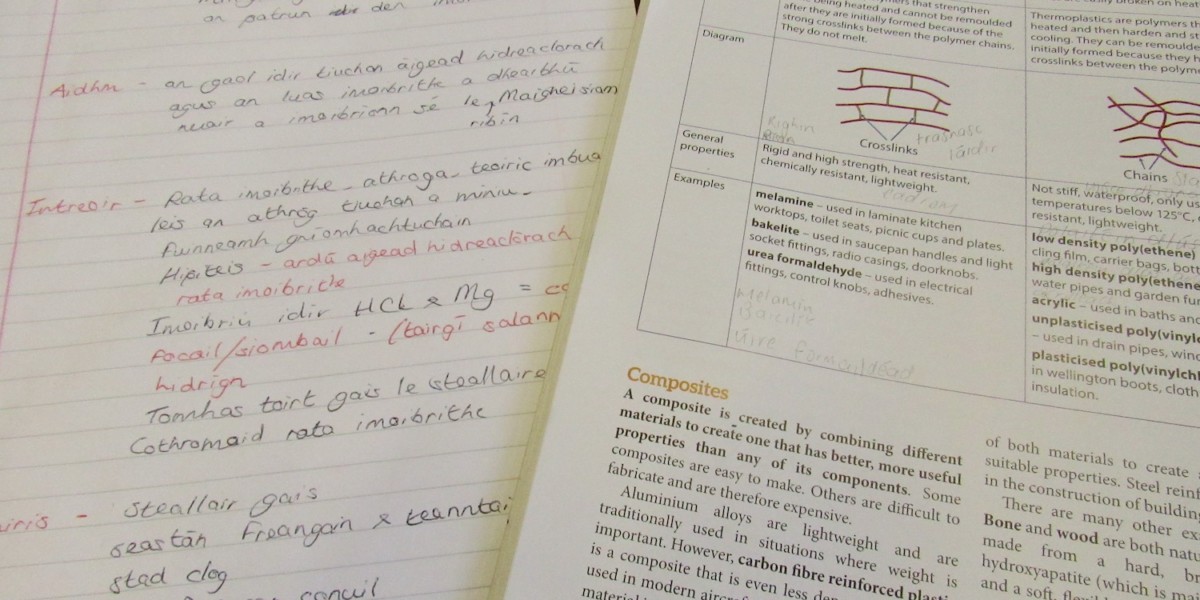 an patrun den
Aidhm - an gaol idir tiuchan áigead hidreaclorach
agus an luas imoibrithe a dhearbhú
nuair a imoibríonn sé le Maigheisiam
ribín
Intreoir - Ráta imoibrithe - athróga - teoiric imbua
leis an athróg tiuchan a míniu -
Fuinneamh gníomhachtuchain
Hipitéis - ardú aigead hidreaclórach
ráta imoibrithe
Imoibriú idir HCL & Mg =
Focail/siombail - (táirgí salann
hidrigin
Tomhas toirt gáis le steallaire
Cothromaid ráta imoibrithe
steallair gáis
seastán Freangáin & teanntai
stad clog
being heated and cannot be remoulded
after they are initially formed because of the
strong crosslinks between the polymer chains.
They do not melt.
Thermoplastics are polymers
heated and then harden and
cooling. They can be
initially formed because they
crosslinks between the
Diagram
Righin
Crosslinks
trasnasc
láidir
Chains
General
properties
Rigid and high strength, heat resistant,
chemically resistant, lightweight.
éadrom
Not stiff, waterproof, only
temperatures below 125°C,
resistant, lightweight.
Examples
melamine – used in laminate kitchen
worktops, toilet seats, picnic cups and plates.
bakelite – used in saucepan handles and light
socket fittings, radio casings, doorknobs.
urea formaldehyde – used in electrical
fittings, control knobs, adhesives.
Melamin
úire formaildéad
low density poly(ethene)
cling film, carrier bags,
high density poly(ethene
water pipes and garden
acrylic – used in baths and
unplasticised poly(vinylc
– used in drain pipes,
plasticised poly(vinylchl
in wellington boots,
insulation.
Composites
A composite is created by combining different
materials to create one that has better, more useful
properties than any of its components. Some
composites are easy to make. Others are difficult to
fabricate and are therefore expensive.
Aluminium alloys are lightweight and are
traditionally used in situations where weight is
important. However, carbon fibre reinforced
is a composite that is even less
used in modern
of both materials to create
suitable properties. Steel
in the construction of
There are many other
Bone and wood are both
made from a hard,
hydroxyapatite (which is
and a soft,